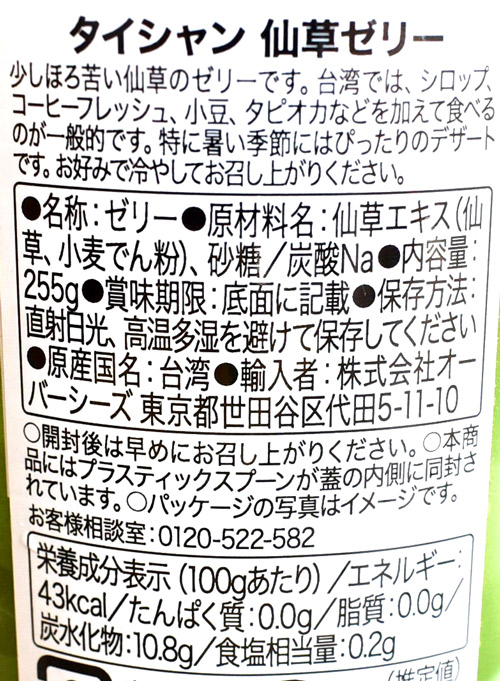 タイシャン 仙草ゼリー
少しほろ苦い仙草のゼリーです。台湾では、シロップ、
コーヒーフレッシュ、小豆、タピオカなどを加えて食べる
のが一般的です。特に暑い季節にはぴったりのデザート
です。お好みで冷やしてお召し上がりください。
●名称:ゼリー●原材料名:仙草エキス(仙
草、小麦でん粉)、砂糖/炭酸Na●内容量:
255g●賞味期限:底面に記載●保存方法:
直射日光、高温多湿を避けて保存してください
●原産国名:台湾●輸入者:株式会社オー
バーシーズ 東京都世田谷区代田5-11-10
○開封後は早めにお召し上がりください。○本商
品にはプラスティックスプーンが蓋の内側に同封さ
れています。○パッケージの写真はイメージです。
お客様相談室:0120-522-582
栄養成分表示(100gあたり)/エネルギー:
43kcal/たんぱく質:0.0g/脂質:0.0g/
炭水化物:10.8g/食塩相当量:0.2g
(推定値)